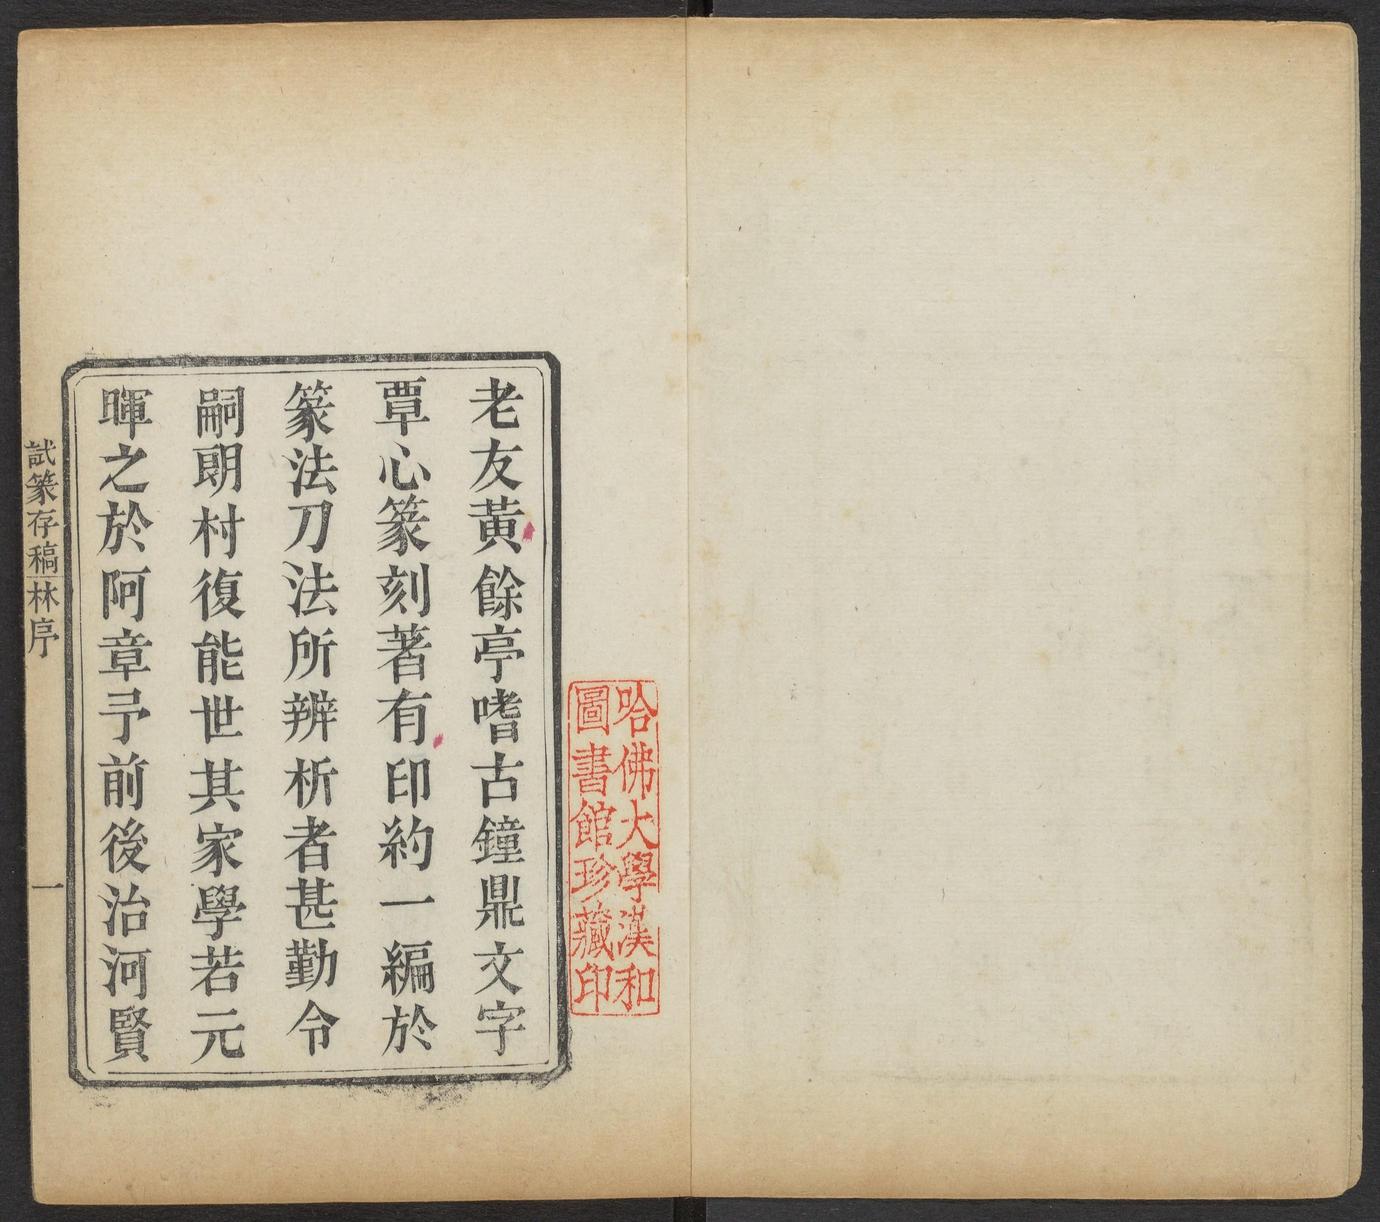 哈佛大學漢和
圖書館珍藏印
老友黃餘亭嗜古鐘鼎文字
覃心篆刻著有印約一編於
篆法刀法所辨析者甚勤令
嗣朗村復能世其家學若元
暉之於阿章予前後治河賢
試篆存稿 林序 一